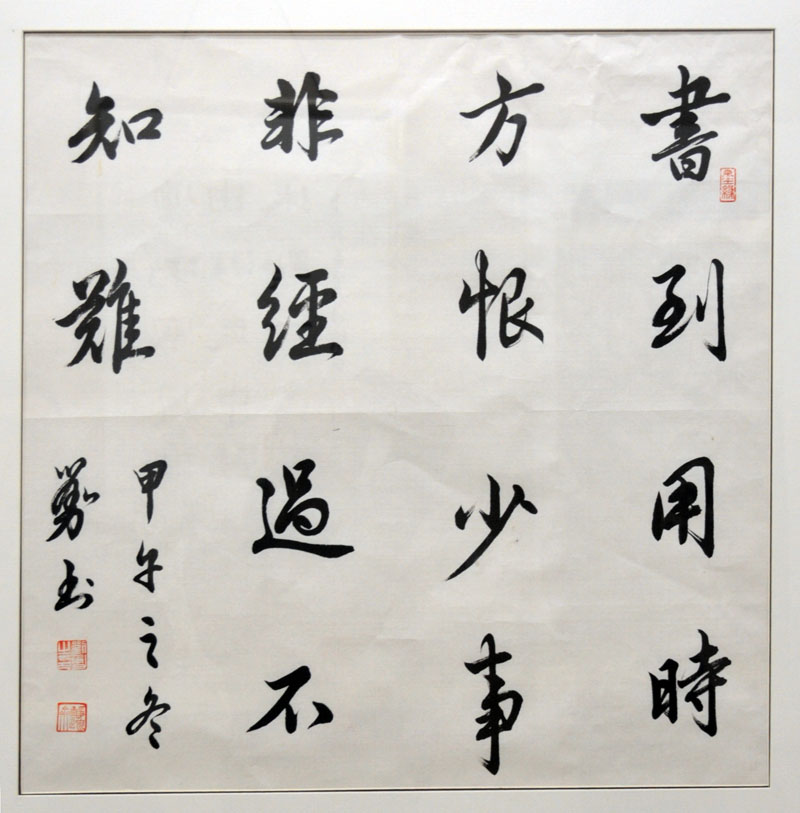 書到用時
方恨少事
非經過不
知難
甲午之冬
勇书